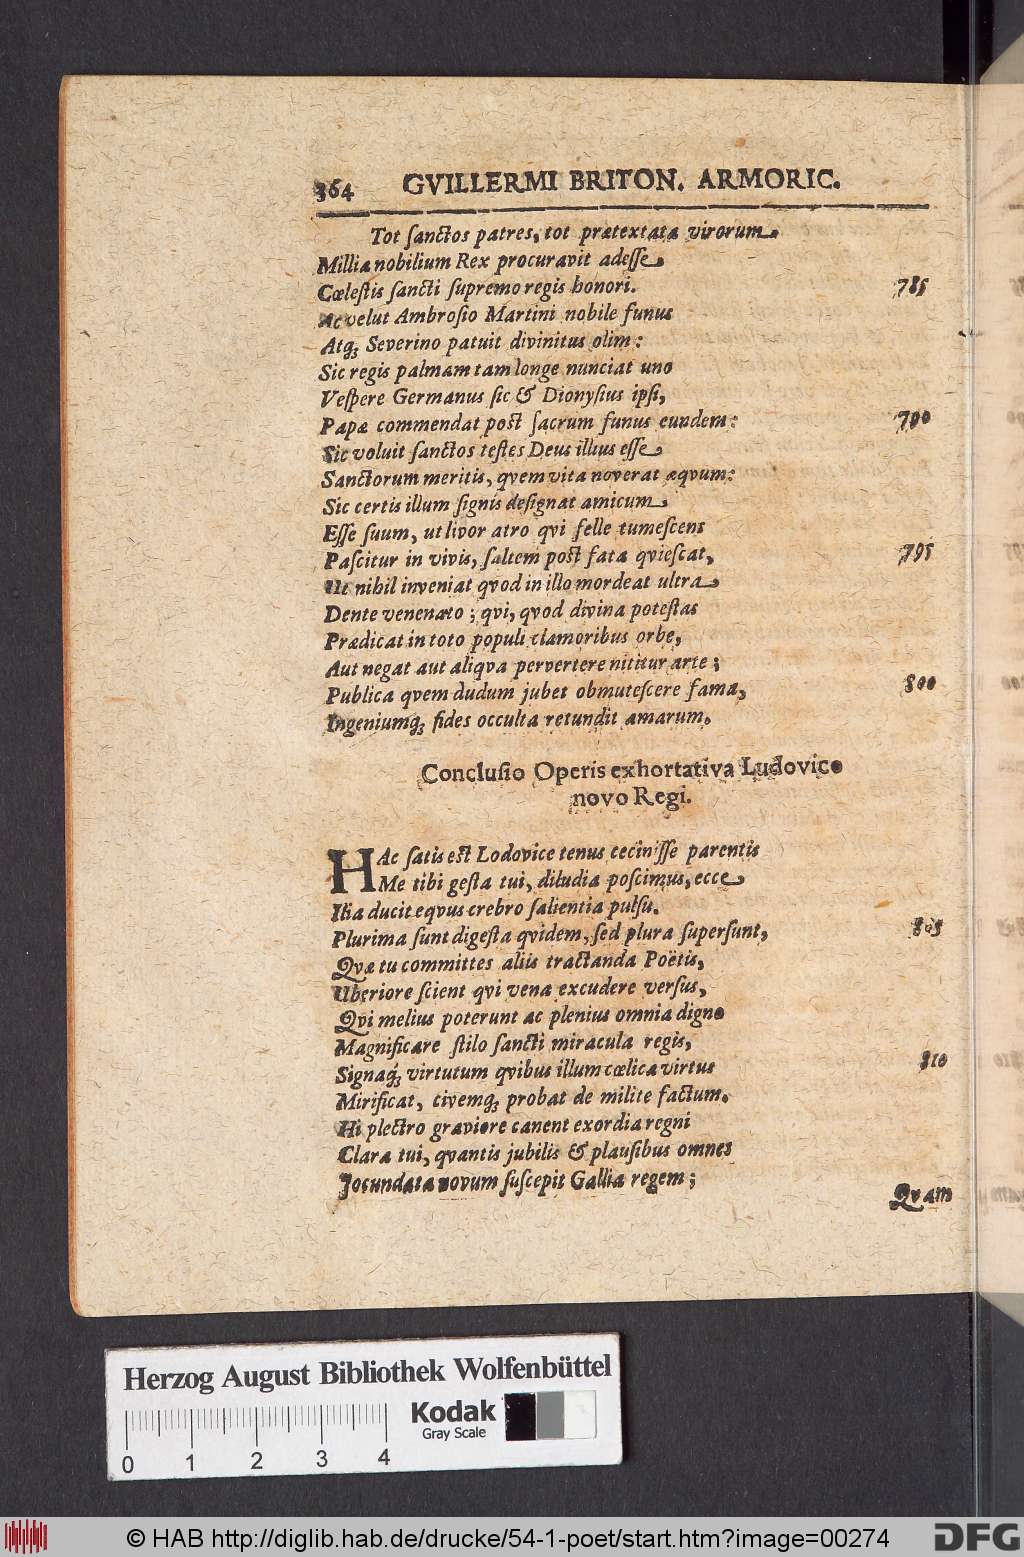 364 GVILLERMI BRITON. ARMORIC.
Tot ſanctos patres, tot prætextata virorum
Millia nobilium Rex procuravit adeſſe
Cœleſtis ſancti ſupremo regis honori. 785
Ac velut Ambroſio Martini nobile funus
Atq; Severino patuit divinitus olim:
Sic regis palmam tam longe nunciat uno
Veſpere Germanus ſic & Dionyſius ipſi,
Papæ commendat poſt ſacrum funus eundem: 790
Sic voluit ſanctos teſtes Deus illius eſſe
Sanctorum meritis, qvem vita noverat æqvum:
Sic certis illum ſignis deſignat amicum
Eſſe ſuum, ut livor atro qvi felle tumeſcens
Paſcitur in vivis, ſaltem poſt fata qvieſcat, 795
Ut nihil inveniat qvod in illo mordeat ultra
Dente venenato; qvi, qvod divina poteſtas
Prædicat in toto populi clamoribus orbe,
Aut negat aut aliqva pervertere nititur arte;
Publica qvem dudum jubet obmuteſcere fama, 800
Ingeniumq; fides occulta retundit amarum.
Concluſio Operis exhortativa Ludovico
novo Regi.
HAc ſatis eſt Lodovice tenus ceciniſſe parentis
Me tibi geſta tui, diludia poſcimus, ecce
Ilia ducit eqvus crebro ſalientia pulſu.
Plurima ſunt digeſta qvidem, ſed plura ſuperſunt, 805
Qvæ tu committes aliis tractanda Poëtis,
Uberiore ſcient qvi vena excudere verſus,
Qvi melius poterunt ac plenius omnia digno
Magnificare ſtilo ſancti miracula regis,
Signaq; virtutum qvibus illum cœlica virtus 810
Mirificat, civemq; probat de milite factum.
Hi plectro graviore canent exordia regni
Clara tui, qvantis jubilis & plauſibus omnes
Jocundata novum ſuſcepit Gallia regem;
Qvam
Herzog August Bibliothek Wolfenbüttel
Kodak
Gray Scale
0 1 2 3 4
© HAB http://diglib.hab.de/drucke/54-1-poet/start.htm?image=00274
DFG